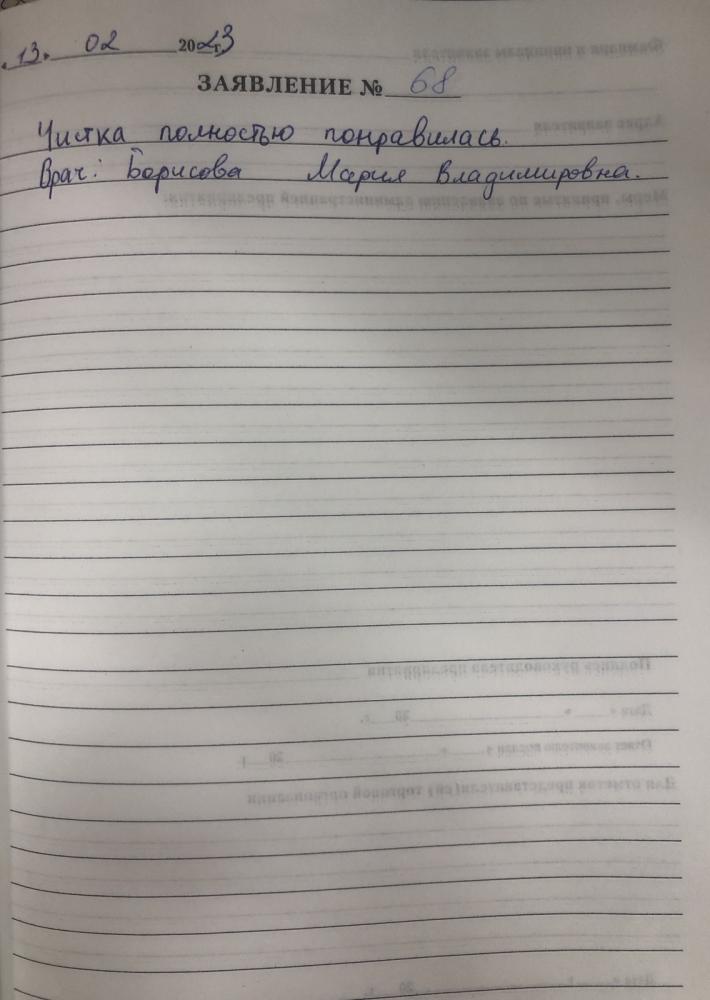 «13» 02 2023 г.
ЗАЯВЛЕНИЕ № 68
Чистка полностью понравилась.
Врач: Борисова Мария Владимировна.